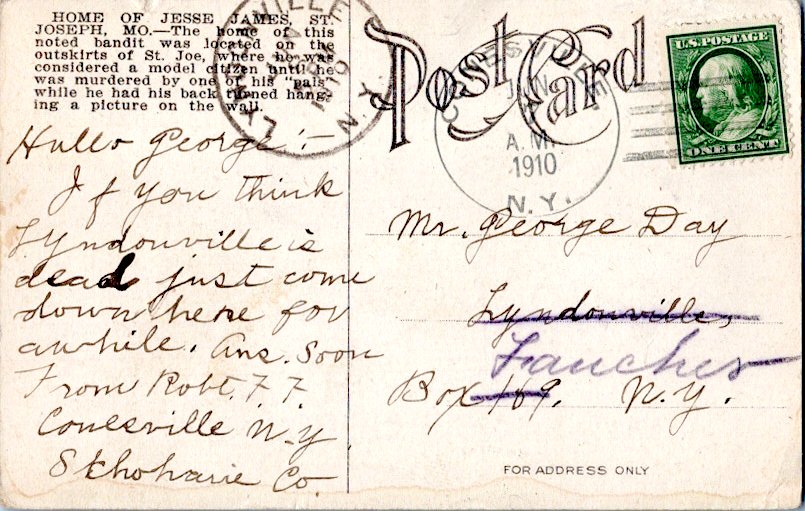 HOME OF JESSE JAMES, ST.
JOSEPH, MO.—The home of this
noted bandit was located on the
outskirts of St. Joe, where he was
considered a model citizen until he
was murdered by one of his "pals"
while he had his back turned hang-
ing a picture on the wall.
Post Card
U.S. POSTAGE
ONE CENT
CONESVILLE
JAN
A.M.
1910
N.Y.
VILLE
N.Y.
Hullo George!—
If you think
Lyndonville is
dead just come
down here for
awhile. Ans. Soon
From Robt. F. F.
Conesville N.Y.
Skhoharie Co.
Mr. George Day
Lyndonville,
Fancher
Box 169. N.Y.
FOR ADDRESS ONLY